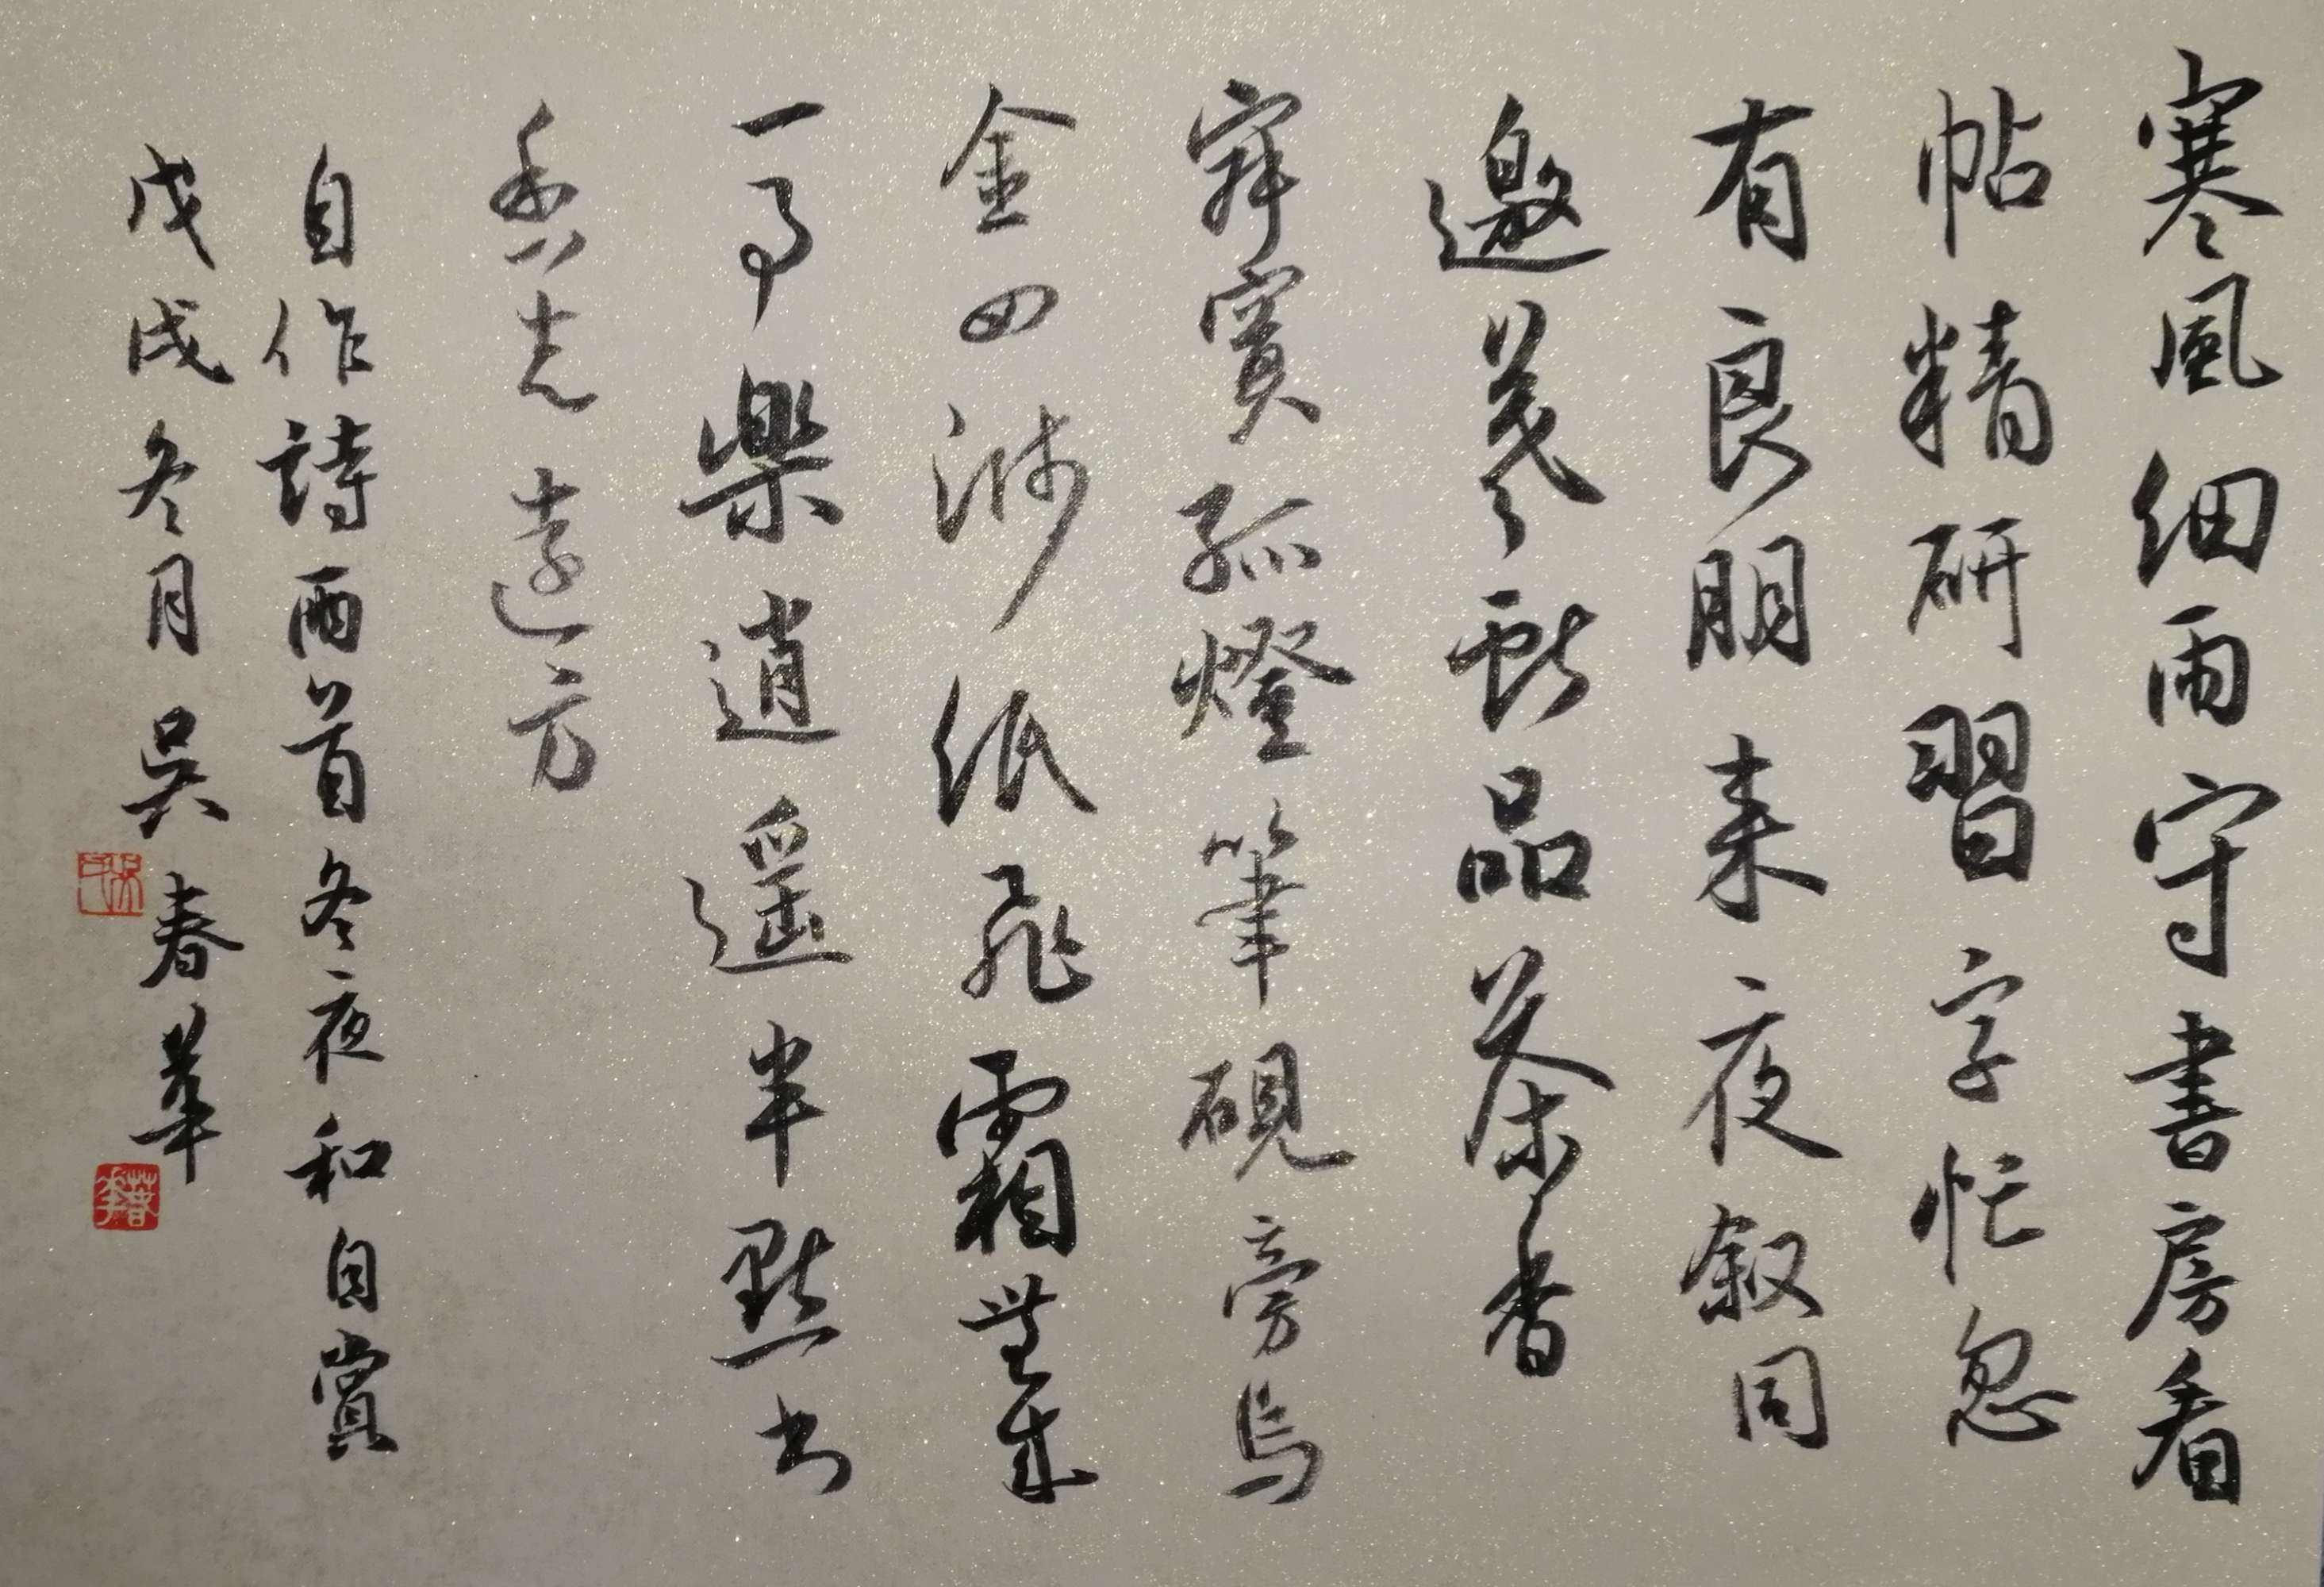 寒風细雨守書房看
帖精研習字忙忽
有良朋来夜叙同
邀羲獻品茶香
寂寞孤燈筆硯旁烏
金四涉紙飛霜無
一事樂逍遥半點书
香遠方
自作詩兩首冬夜和自賞
戊戌冬月吳春華